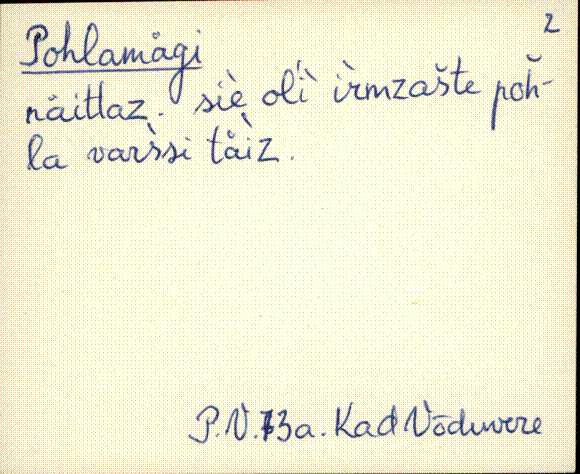 2
Pohlamågi
nåitlaz. siè olì ìrmzašte poȟ-
la vars̀si tåìz.
P.V. 73a. Kad Võduvere